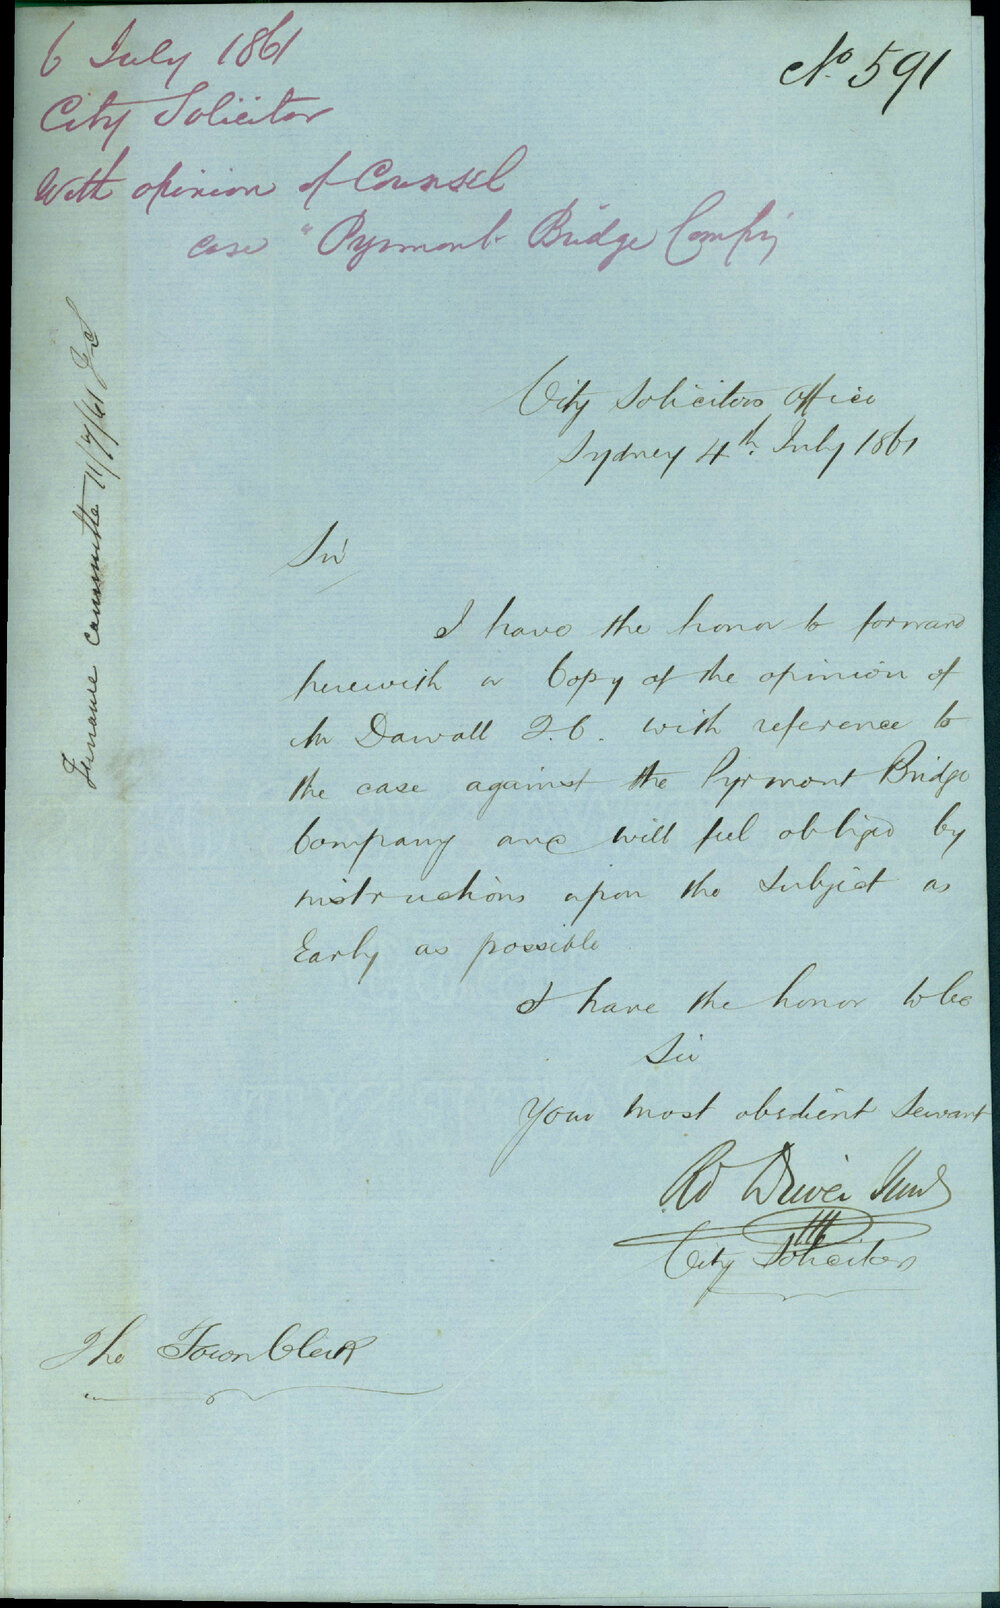 6 July 1861
No. 591
City Solicitor
With opinion of Counsel
case "Pyrmont Bridge Compy
Finance Committee 11/7/61
City Solicitors Office
Sydney 4th July 1861
Sir
I have the honor to forward
herewith a Copy of the opinion of
Mr Darvall Q.C. with reference to
the case against the Pyrmont Bridge
Company and will feel obliged by
instructions upon the subject as
Early as possible
I have the honor to be
Sir
Your most obedient Servant
Rd Driver Junr
City Solicitor
The Town Clerk